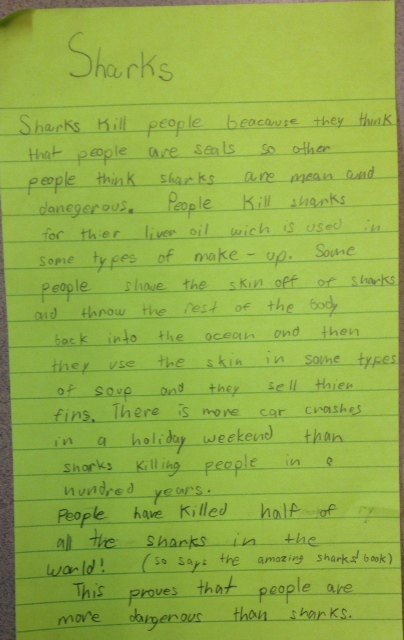 Sharks
Sharks Kill people beacause they think
that people are seals so other
people think sharks are mean and
danegerous. People Kill sharks
for thier liver oil wich is used in
some types of make-up. Some
people shave the skin off of sharks
and throw the rest of the body
back into the ocean and then
they use the skin in some types
of soup and they sell thier
fins. There is more car crashes
in a holiday weekend than
sharks killing people in a
hundred years.
People have killed half of
all the sharks in the
world! (so says the amazing sharks! book)
This proves that people are
more dangerous than sharks.